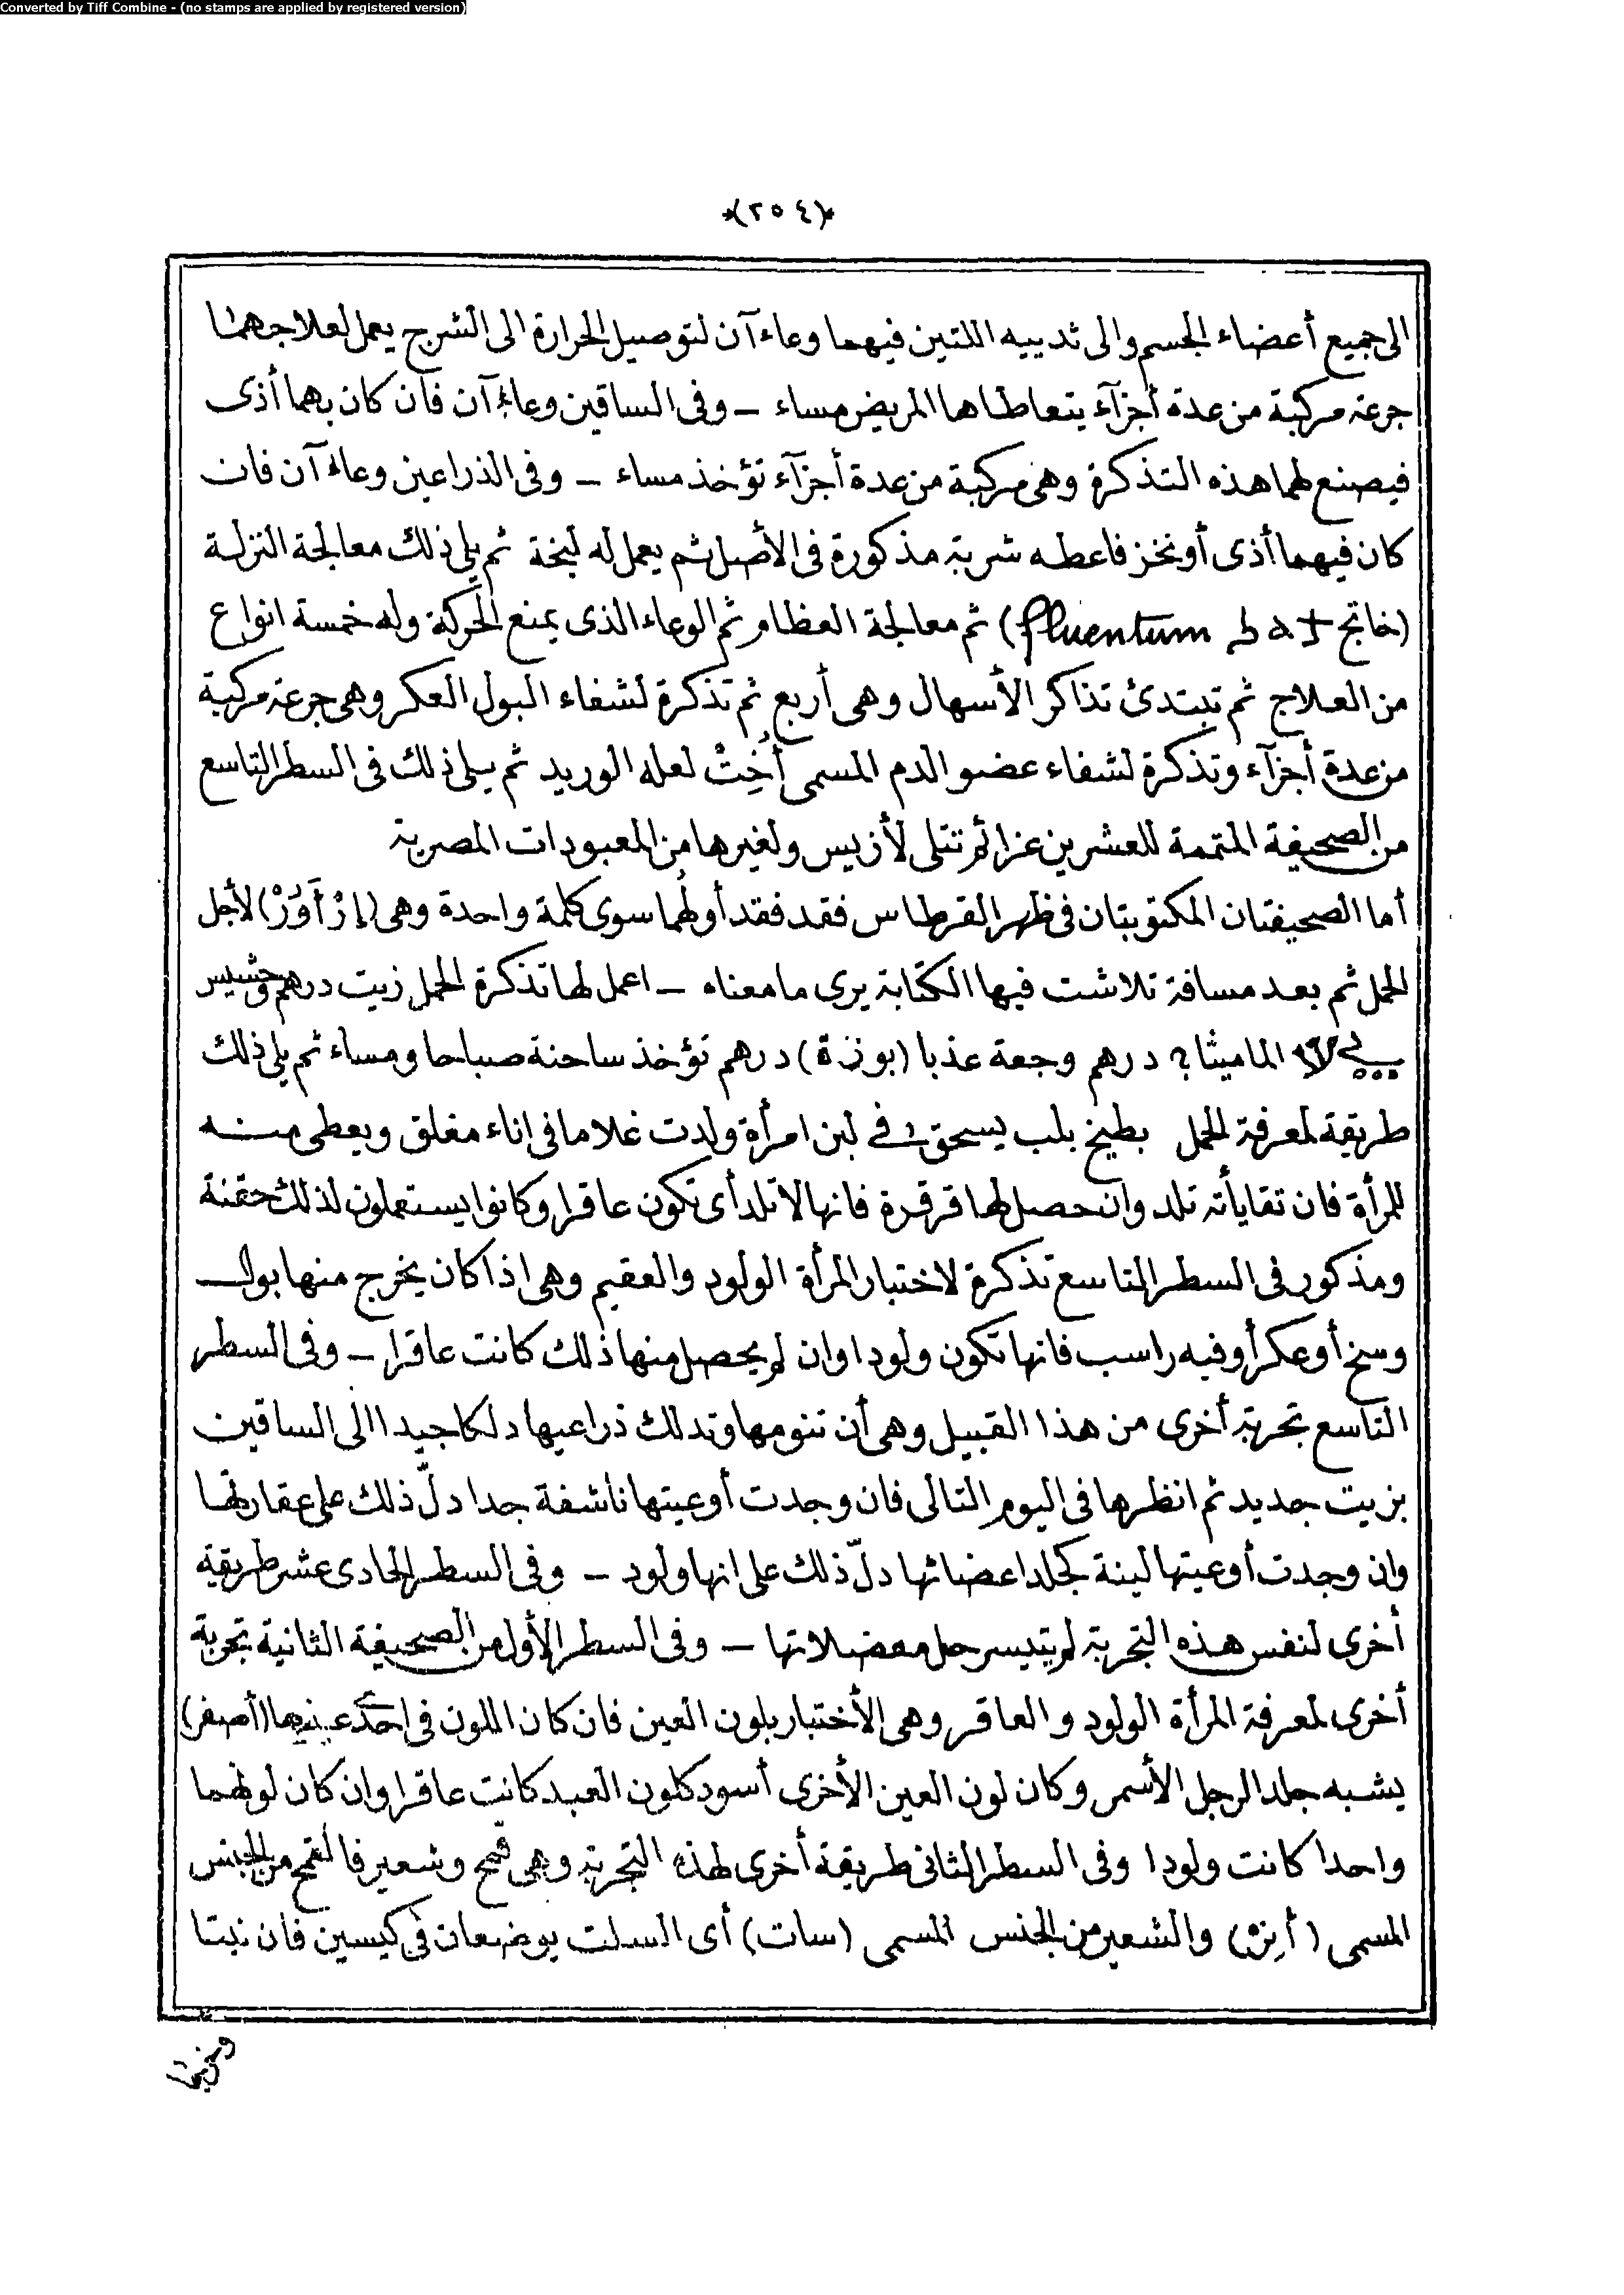 Converted by Tiff Combine - (no stamps are applied by registered version)
*(٢٥٤)*
الى جميع أعضاء الجسم والى ثدييه اللتين فيهما وعاءآن لتوصيل الحرارة الى الشرج يعمل لعلاجهما
جرعة مركبة من عدة أجزآء يتعاطاها المريض مساء – وفى الساقين وعاءآن فان كان بهما أذى
فيصنع لهما هذه التذكرة وهى مركبة من عدة أجزآء تؤخذ مساء – وفى الذراعين وعاءآن فان
كان فيهما أذى أو نخز فاعطه شربة مذكورة فى الأصل ثم يعمل له لبخة ثم يلى ذلك معالجة النزلة
(خاتج fluentum) ثم معالجة العظام ثم الوعاء الذى يمنع الحركة وله خمسة انواع
من العلاج ثم تبتدئ تذاكر الأسهال وهى أربع ثم تذكرة لشفاء البول العكر وهى جرعة مركبة
من عدة أجزآء وتذكرة لشفاء عضو الدم المسمى أُخِتْ لعله الوريد ثم يلى ذلك فى السطر التاسع
من الصحيفة المتممة للعشرين عزائم تتلى لأزيس ولغيرها من المعبودات المصرية
أما الصحيفتان المكتوبتان فى ظهر القرطاس فقد فقد أولهما سوى كلمة واحدة وهى (إرْأَوُرْ) لأجل
الحمل ثم بعد مسافة تلاشت فيها الكتابة يرى ما معناه – اعمل لها تذكرة الحمل زيت درهم وحشيس
الماميثا؟ درهم وجعة عذبا (بوزة) درهم تؤخذ ساخنة صباحا ومساء ثم يلى ذلك
طريقة لمعرفة الحمل بطيخ بلب يسحق فى لبن امرأة ولدت غلاما فى إناء مغلق ويعطى منه
للمرأة فان تقايأته تلد وان حصل لها قرقرة فانها لا تلد أى تكون عاقرا وكانوا يستعملون لذلك حقنة
ومذكور فى السطر التاسع تذكرة لاختبار المرأة الولود والعقيم وهى اذا كان يخرج منها بول
وسخ أو عكر أو فيه راسب فانها تكون ولودا وان لم يحصل منها ذلك كانت عاقرا – وفى السطر
التاسع تجربة أخرى من هذا القبيل وهى أن تنومها وتدلك ذراعيها دلكا جيدا الى الساقين
بزيت جديد ثم انظرها فى اليوم التالى فان وجدت أوعيتها ناشفة جدا دلّ ذلك على عقارتها
وان وجدت أوعيتها لينة كجلد اعضائها دلّ ذلك على انها ولود – وفى السطر الحادى عشر طريقة
أخرى لنفس هذه التجربة لم يتيسر حل معضلاتها – وفى السطر الأول من الصحيفة الثانية تجربة
أخرى لمعرفة المرأة الولود والعاقر وهى الأختبار بلون العين فان كان اللون فى احدى عينيها (أصفر)
يشبه جلد الرجل الأسمر وكان لون العين الأخرى أسود كلون العبد كانت عاقرا وان كان لونهما
واحدا كانت ولودا وفى السطر الثانى طريقة أخرى لهذه التجربة وهى قمح وشعير فالقمح من الجنس
المسمى (أنزه) والشعير من الجنس المسمى (سات) أى السلت يوضعان فى كيسين فان نبتا